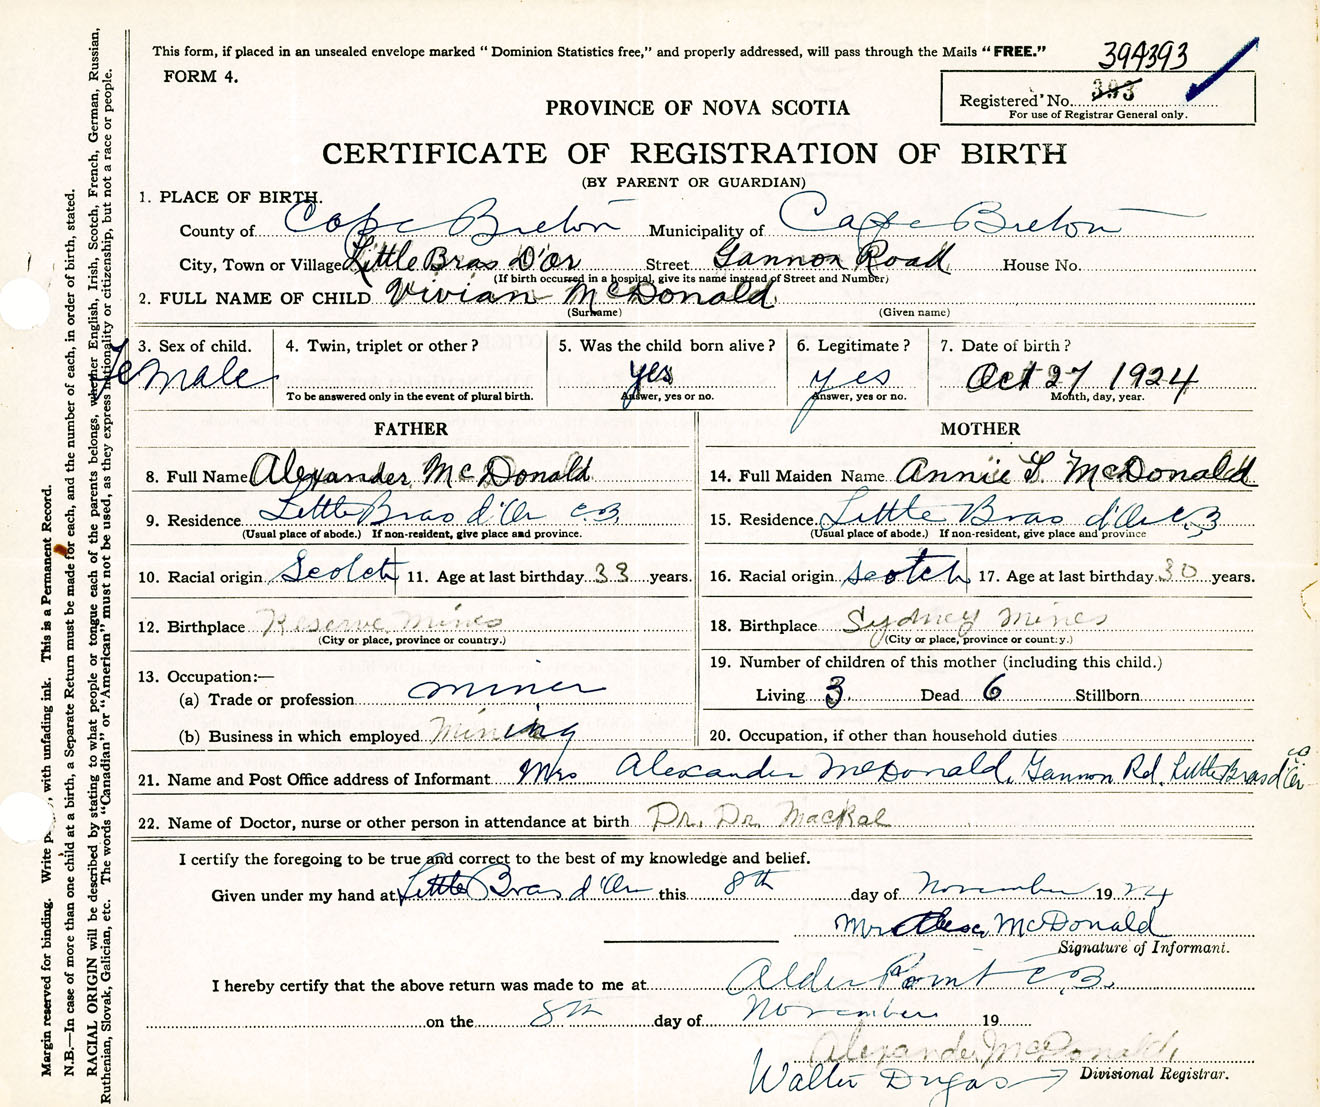 This form, if placed in an unsealed envelope marked "Dominion Statistics free," and properly addressed, will pass through the Mails "FREE."
394393
FORM 4.
Registered No. 393
For use of Registrar General only.
PROVINCE OF NOVA SCOTIA
CERTIFICATE OF REGISTRATION OF BIRTH
(BY PARENT OR GUARDIAN)
1. PLACE OF BIRTH.
County of Cape Breton Municipality of Cape Breton
City, Town or Village Little Bras D'or Street Gannon Road House No.
(If birth occurred in a hospital, give its name instead of Street and Number)
2. FULL NAME OF CHILD Vivian McDonald
(Surname) (Given name)
3. Sex of child. 4. Twin, triplet or other? 5. Was the child born alive? 6. Legitimate? 7. Date of birth?
Female yes yes Oct 27 1924
To be answered only in the event of plural birth. Answer, yes or no. Answer, yes or no. Month, day, year.
FATHER MOTHER
8. Full Name Alexander McDonald 14. Full Maiden Name Annie S. McDonald
9. Residence Little Bras d'Or C.B. 15. Residence Little Bras d'Or C.B
(Usual place of abode.) If non-resident, give place and province. (Usual place of abode.) If non-resident, give place and province
10. Racial origin Scotch 11. Age at last birthday 33 years. 16. Racial origin Scotch 17. Age at last birthday 30 years.
12. Birthplace Reserve Mines 18. Birthplace Sydney Mines
(City or place, province or country.) (City or place, province or country.)
13. Occupation:— 19. Number of children of this mother (including this child.)
(a) Trade or profession miner Living 3 Dead 6 Stillborn
(b) Business in which employed Mining 20. Occupation, if other than household duties
21. Name and Post Office address of Informant Mrs Alexander McDonald, Gannon Rd. Little Bras d'Or CB
22. Name of Doctor, nurse or other person in attendance at birth Dr. Dr. MacKal
I certify the foregoing to be true and correct to the best of my knowledge and belief.
Given under my hand at Little Bras d'Or this 8th day of November 1924
Mrs Alex McDonald
Signature of Informant.
I hereby certify that the above return was made to me at Alder Point C.B.
on the 8th day of November 19
Alexander McDonald,
Walter Dugas Divisional Registrar.
Margin reserved for binding. Write with unfading ink. This is a Permanent Record.
N.B.—In case of more than one child at a birth, a Separate Return must be made for each, and the number of each, in order of birth, stated.
RACIAL ORIGIN will be described by stating to what people or tongue each of the parents belongs, whether English, Irish, Scotch, French, German, Russian,
Ruthenian, Slovak, Galician, etc. The words "Canadian" or "American" must not be used, as they express nationality or citizenship, but not a race or people.